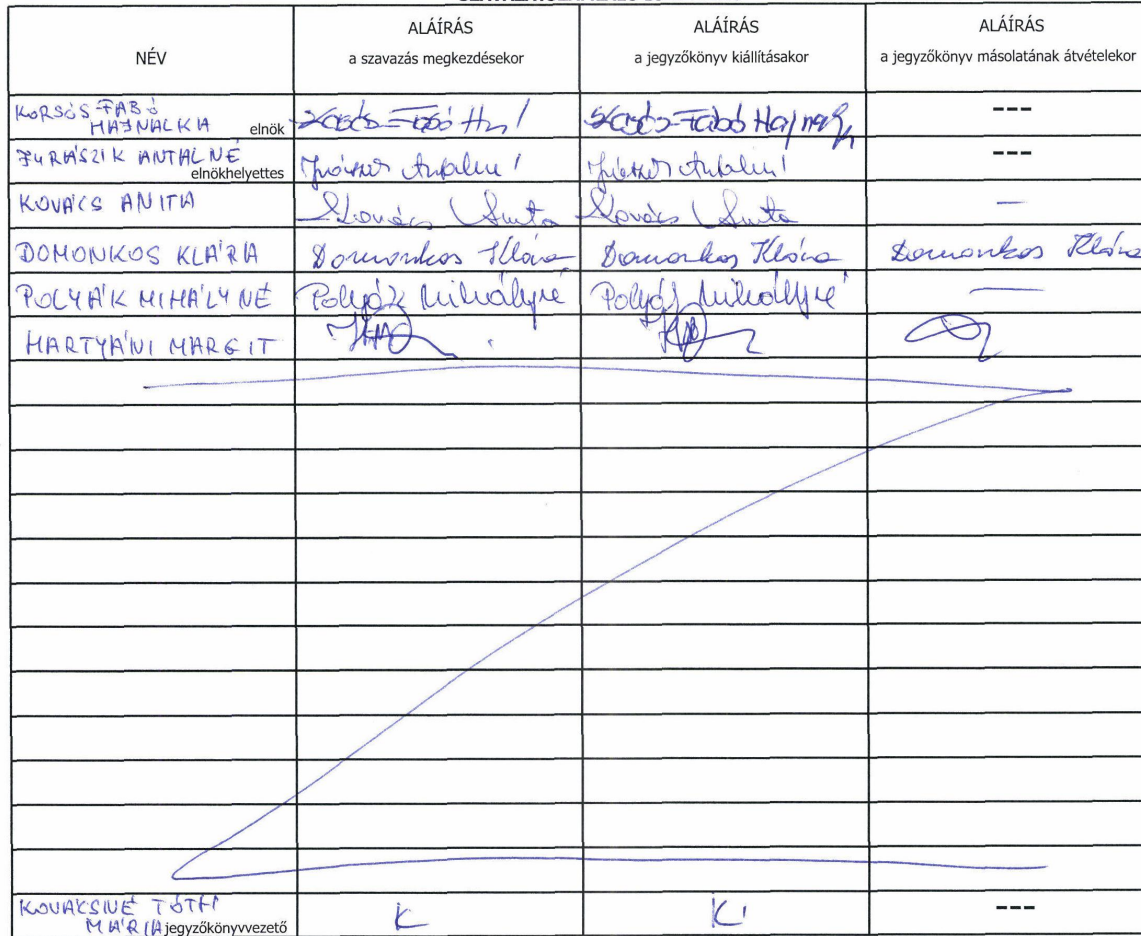 NÉV
ALÁÍRÁS
a szavazás megkezdésekor
ALÁÍRÁS
a jegyzőkönyv kiállításakor
ALÁÍRÁS
a jegyzőkönyv másolatának átvételekor
KORSÓS-FABÓ
HAJNALKA elnök
---
JURÁSZIK ANTALNÉ
elnökhelyettes
---
KOVÁCS ANITA Kovács Anita Kovács Anita —
DOMONKOS KLÁRA Domonkos Klára Domonkos Klára Domonkos Klára
POLYÁK MIHÁLYNÉ Polyák Mihályné Polyák Mihályné —
HARTYÁNI MARGIT
MÁRIA jegyzőkönyvvezető
---